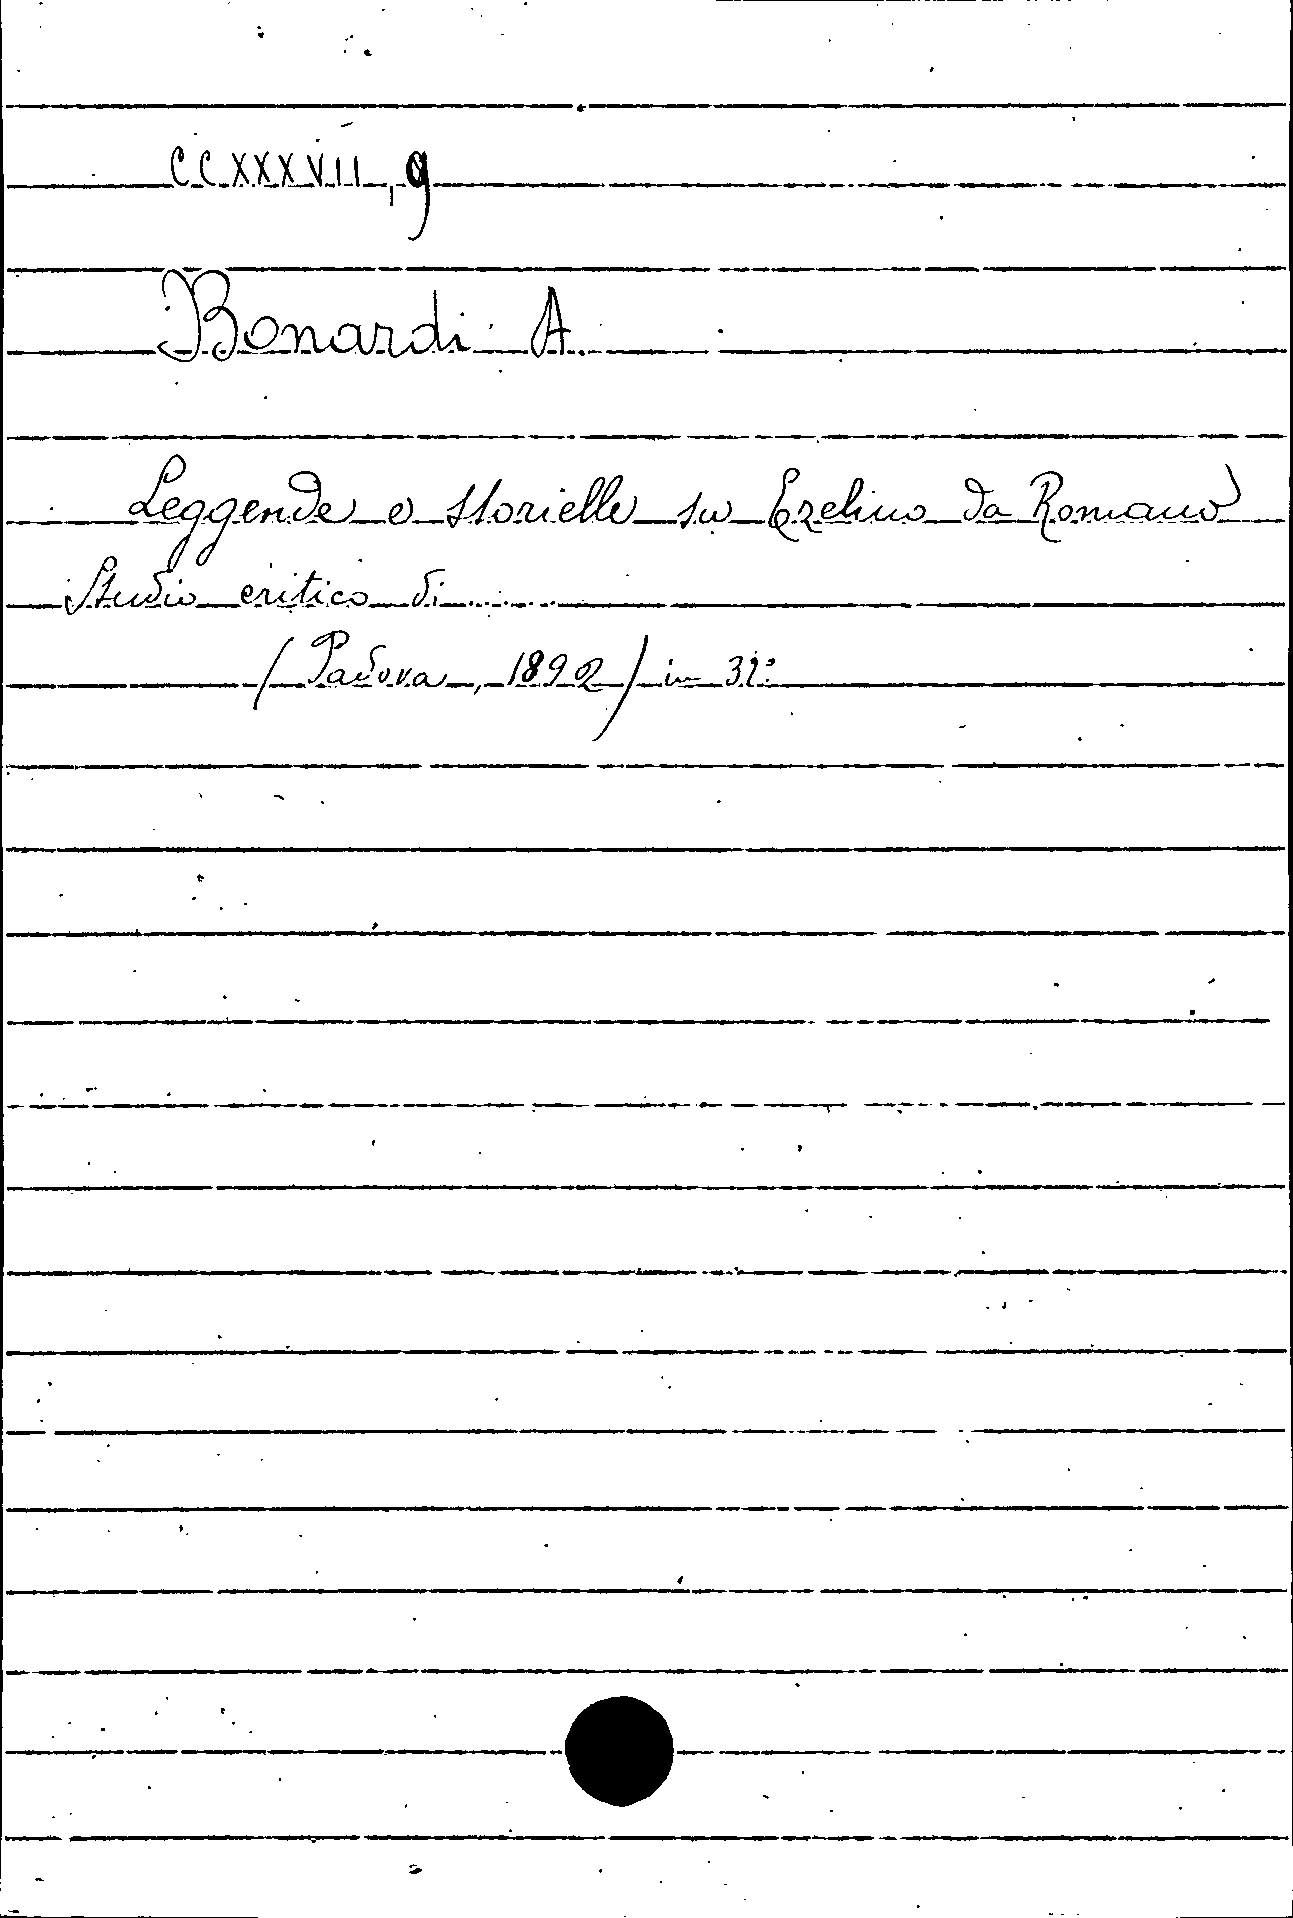 CCXXXVII, 9
Bonardi A.
Leggende e storielle su Ezelino da Romano
Studio critico di......
(Padova, 1892) in 32º